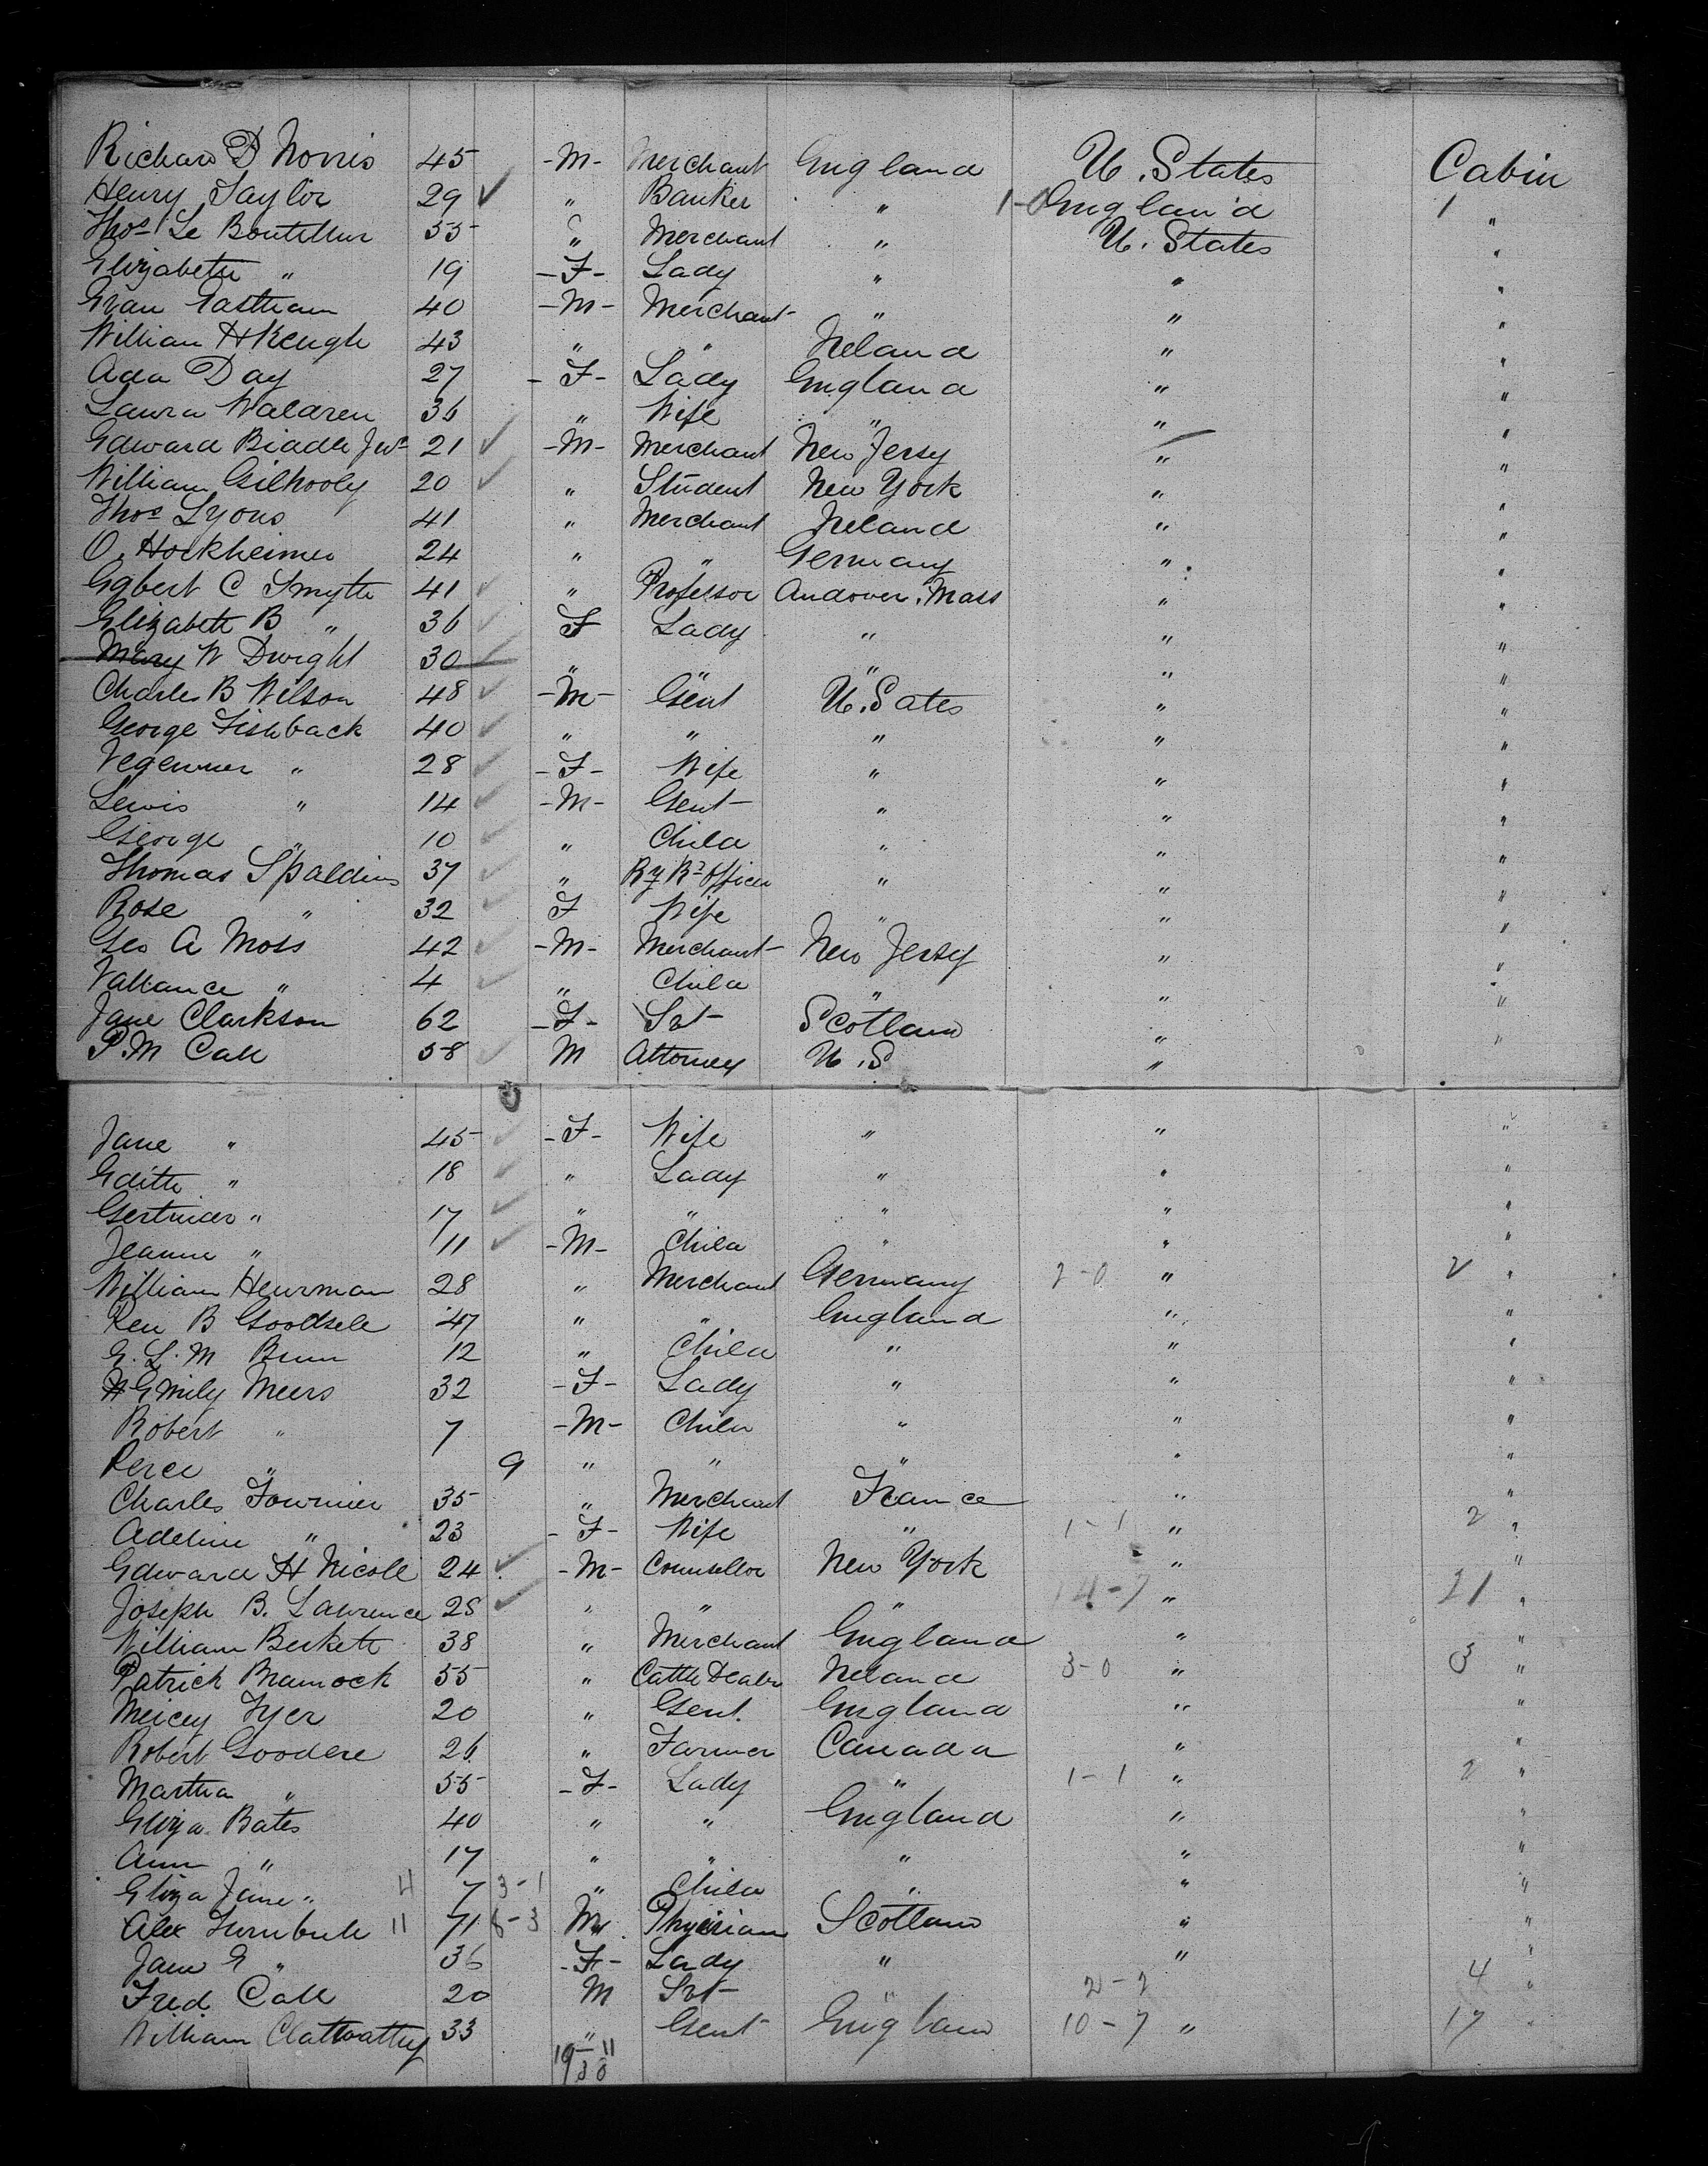 Richard D Norris 45 -M- Merchant England U. States Cabin
Henry Taylor 29 ✓ " Banker " 1-0 England 1 "
Thos Le Boutellier 55 " Merchant " U. States "
Elizabeth " 19 -F- Lady " " "
Evan Eastham 40 -M- Merchant " " "
William H Keugh 43 " " Ireland " "
Ada Day 27 -F- Lady England " "
Laura Waldren 36 " Wife " " "
Edward Biddle Jur 21 ✓ -M- Merchant New Jersy " "
William Gilhooly 20 ✓ " Student New York " "
Thos Lyons 41 " Merchant Ireland " "
O. Hockheimer 24 " " Germany " "
Egbert C Smyth 41 ✓ " Professor Andover. Mass " "
Elizabeth B " 36 ✓ F Lady " " "
Mary W Dwight 30 ✓ " " " " "
Charles B Wilson 48 ✓ -M- Gent U. Sates " "
George Fishback 40 ✓ " " " " "
" 28 ✓ -F- Wife " " "
Lewis " 14 ✓ -M- Gent " " "
George " 10 ✓ " Child " " "
Thomas Spalding 37 ✓ " Ry Rd officer " " "
Rose " 32 ✓ F Wife " " "
Geo A Moss 42 ✓ -M- Merchant New Jersy " "
Vallance " 4 ✓ " Child " " "
Jane Clarkson 62 -F- Svt Scotland " "
P. M Call 58 ✓ M Attorney U. S " "
Jane " 45 ✓ -F- Wife " " "
Edith " 18 ✓ " Lady " " "
Gertrude " 17 ✓ " " " " "
Jeanne " 11 ✓ -M- Child " " "
William Heurman 28 " Merchant Germany 2-0 " 2 "
Rev B Goodsell 47 " " England " "
G. L. M Brun 12 " Child " " "
Emily Meers 32 -F- Lady " " "
Robert " 7 -M- Child " " "
Perce " 9 " " " " "
Charles Fournier 35 " Merchant France " "
Adeline " 23 -F- Wife " 1-1 " 2 "
Edward H Nicoll 24 ✓ -M- Counsellor New York " "
Joseph B. Lawrence 28 ✓ " " " 14-7 " 21 "
William Beckett 38 " Merchant England " "
Patrick Bramock 55 " Cattle Dealer Ireland 3-0 " 3 "
Mercey Tyer 20 " Gent. England " "
Robert Goodere 26 " Farmer Canada " "
Martha " 55 -F- Lady " 1-1 " 2 "
Eliza Bates 40 " " England " "
Ann " 17 " " " " "
Eliza Jane " 4 7 3-1 " Child " " "
Alex Turnbull 11 71 8-3 M Physician Scotland " "
Jane E " 36 -F- Lady " " "
Fred Call 20 M Svt " 2-2 4 "
William 33 " Gent England 10-7 " 17 "
19 11